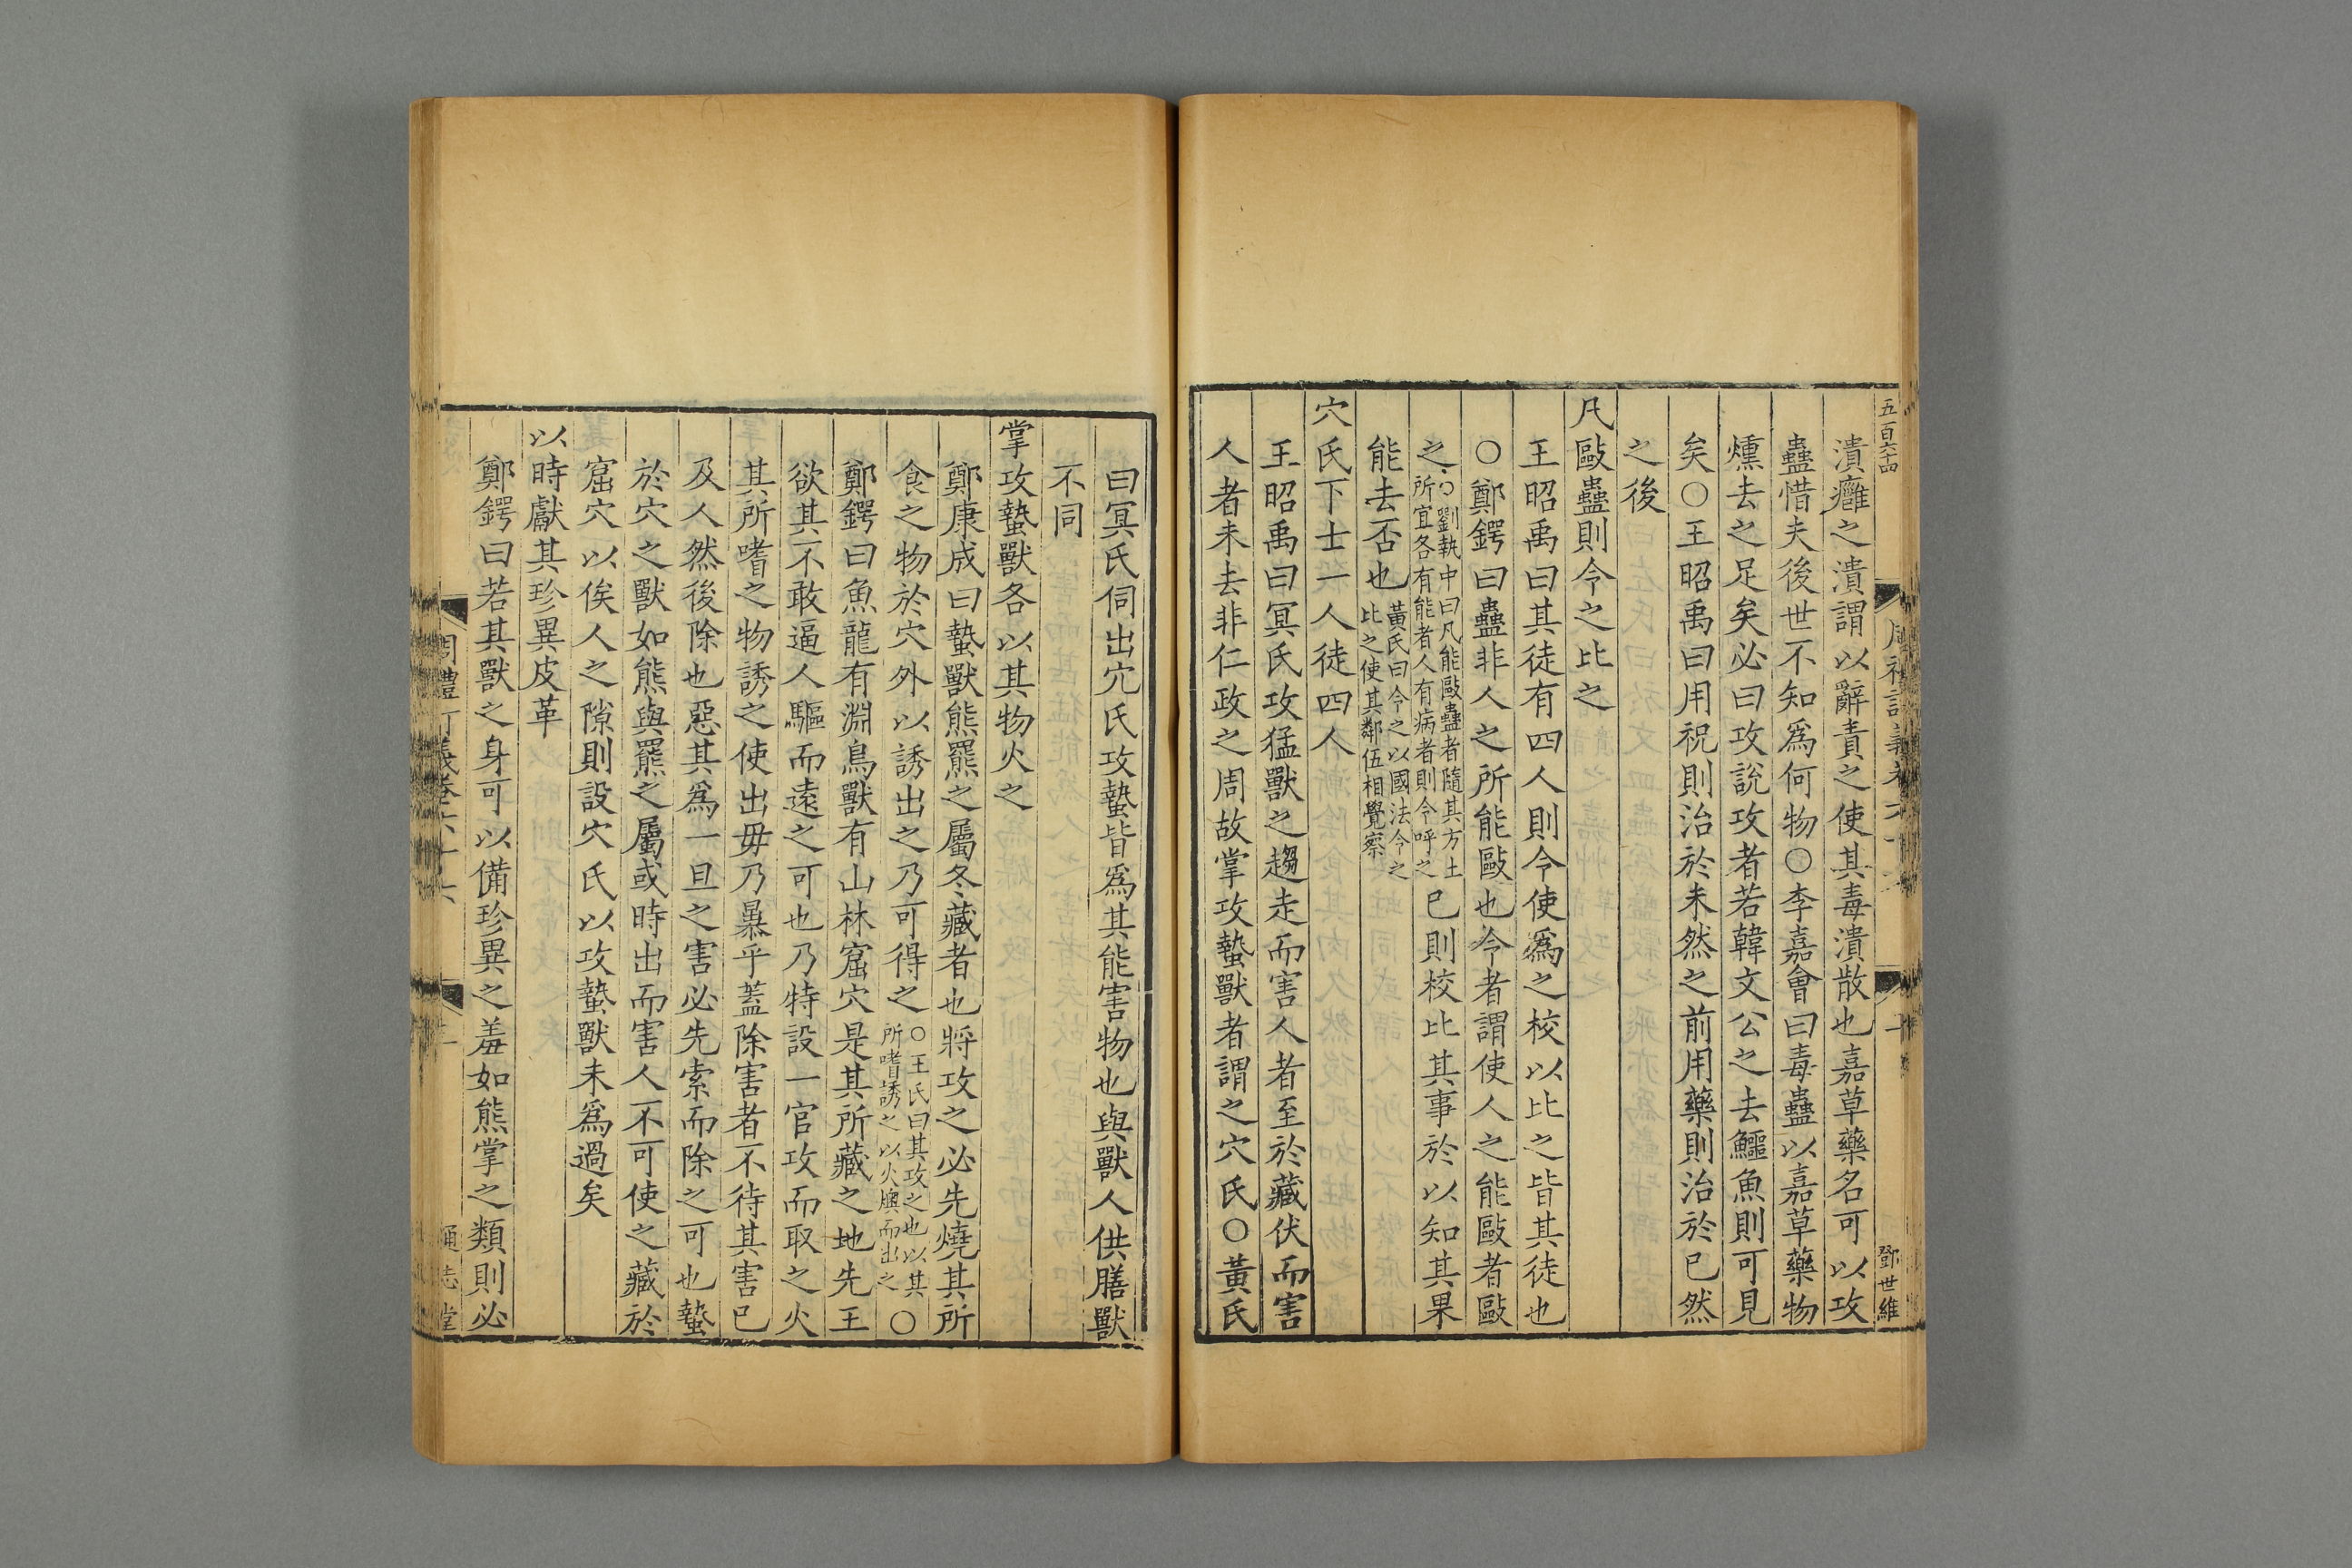 五百六十四
鄧世維
潰癰之潰謂以辭責之使其毒潰散也嘉草藥名可以攻
蠱惜夫後世不知爲何物○李嘉會曰毒蠱以嘉草藥物
燻去之足矣必曰攻說攻者若韓文公之去鱷魚則可見
矣○王昭禹曰用祝則治於未然之前用藥則治於已然
之後
凡敺蠱則令之比之
王昭禹曰其徒有四人則令使爲之校以比之皆其徒也
○鄭鍔曰蠱非人之所能敺也令者謂使人之能敺者敺
之○劉執中曰凡能敺蠱者隨其方土所宜各有能者人有病者則令呼之已則校比其事於以知其果
能去否也黃氏曰令之以國法令之比之使其鄰伍相覺察
穴氏下士一人徒四人
王昭禹曰冥氏攻猛獸之趨走而害人者至於藏伏而害
人者未去非仁政之周故掌攻蟄獸者謂之穴氏○黃氏
曰冥氏伺出穴氏攻蟄皆爲其能害物也與獸人供膳獸
不同
掌攻蟄獸各以其物火之
鄭康成曰蟄獸熊羆之屬冬藏者也將攻之必先燒其所
食之物於穴外以誘出之乃可得之○王氏曰其攻之也以其所嗜誘之以火燠而出之○
鄭鍔曰魚龍有淵鳥獸有山林窟穴是其所藏之地先王
欲其不敢逼人驅而遠之可也乃特設一官攻而取之火
其所嗜之物誘之使出毋乃暴乎蓋除害者不待其害已
及人然後除也惡其爲一旦之害必先索而除之可也蟄
於穴之獸如熊與羆之屬或時出而害人不可使之藏於
窟穴以俟人之隙則設穴氏以攻蟄獸未爲過矣
以時獻其珍異皮革
鄭鍔曰若其獸之身可以備珍異之羞如熊掌之類則必
周禮訂義卷六十六
通志堂